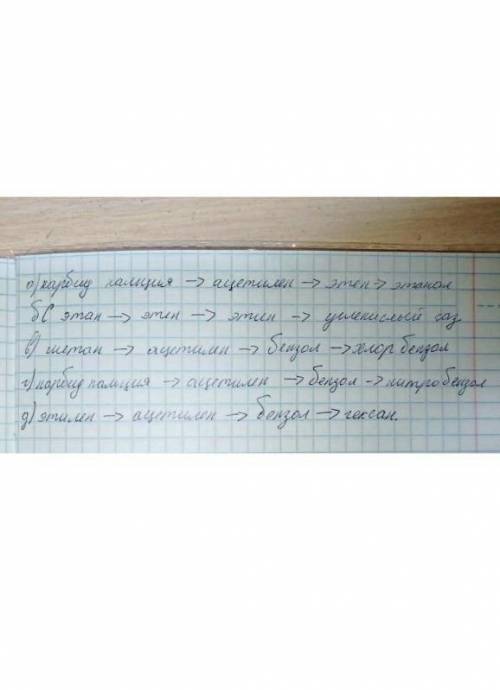 а) карбид кальция → ацетилен → этен → этанол
б) этан → этен → этин → углекислый газ
в) метан → ацетилен → бензол → хлор бензол
г) карбид кальция → ацетилен → бензол → нитробензол
д) этилен → ацетилен → бензол → гексан.